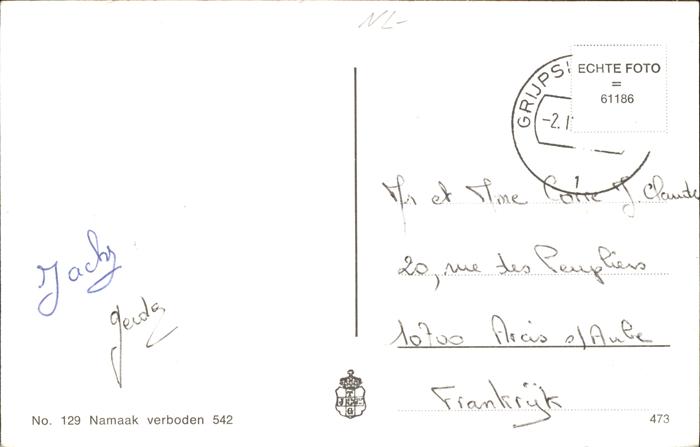 NL-
GRIJPS
-2.
1
ECHTE FOTO
=
61186
Mr et Mme Corre J. Claude
20, rue des Peupliers
10700 Arcis s/Aube
Frankrijk
Jacky
Gerda
No. 129 Namaak verboden 542
473